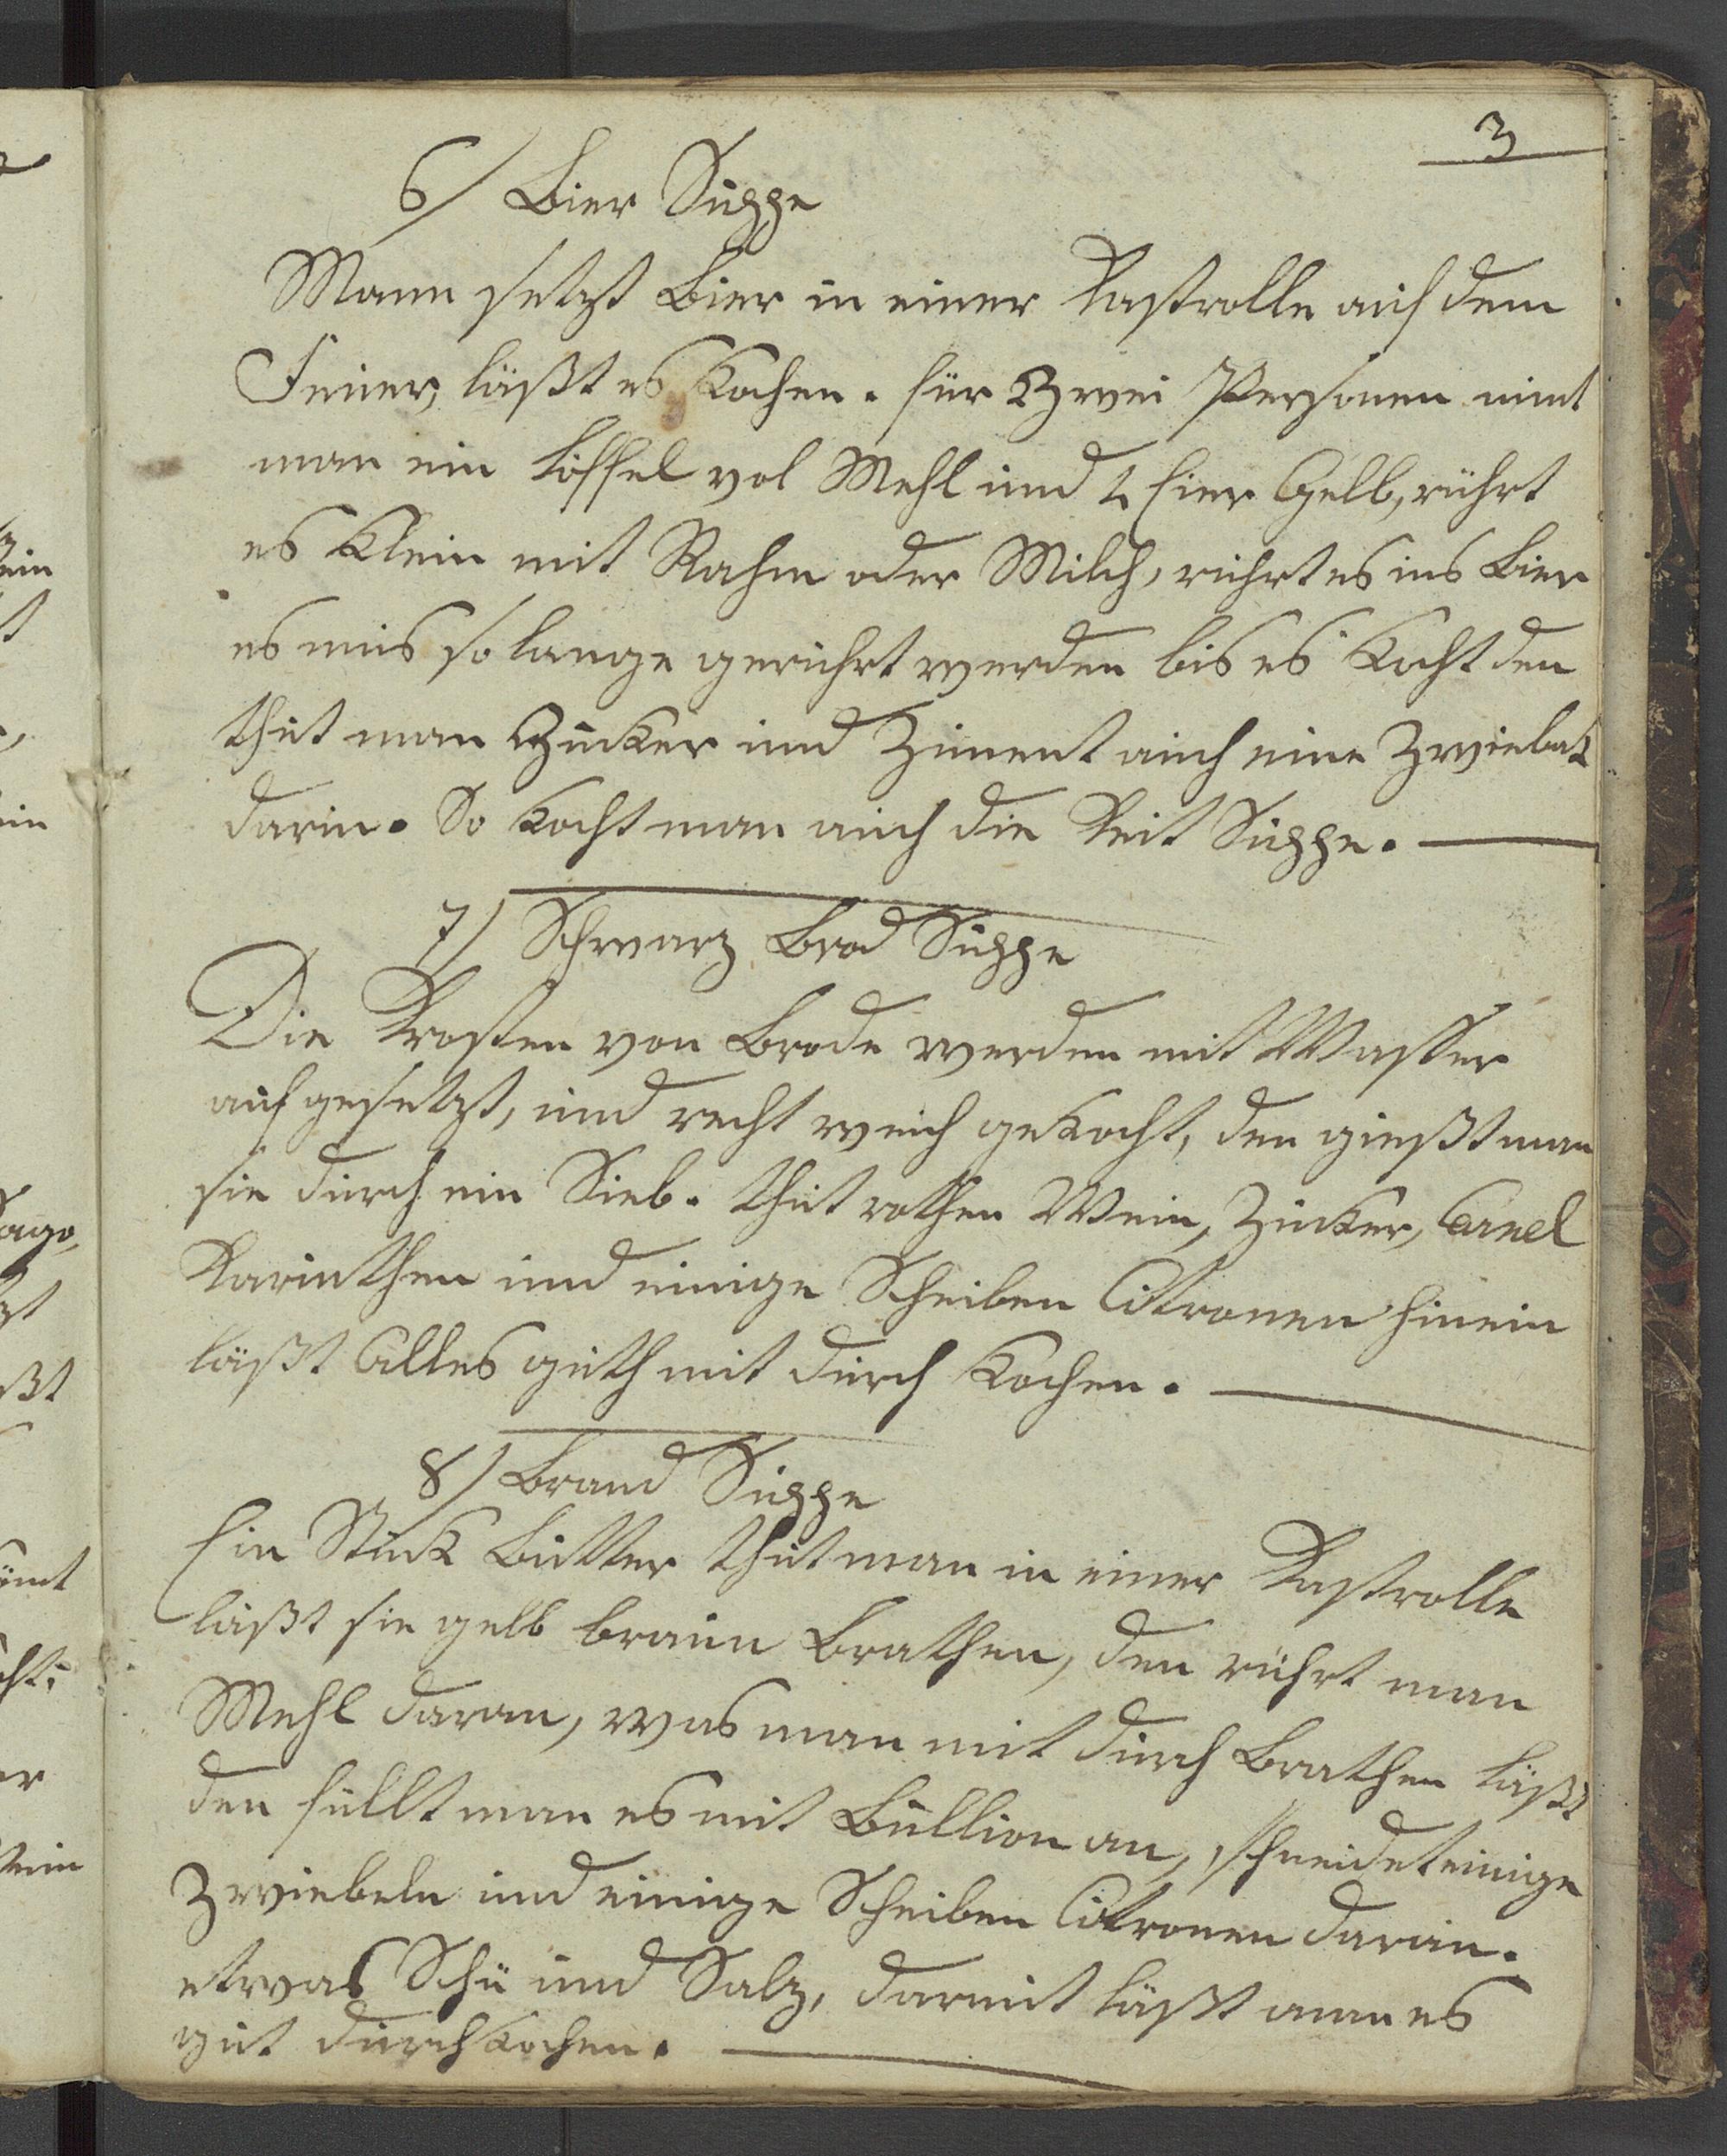 3
6/ Bier Suppe
Mann setzt Bier in einer Kastrolle auf dem
Feuer, läßt es Kochen. für Zwei Personen nimt
man ein Löffel vol Mehl und 2 Eier Gelb, rührt
es Klein mit Rahm oder Milch, rührt es ins Bier
es mus so lange gerührt werden bis es Kocht den
thut man Zucker und Ziment auch eine Zwiebak
darin. So Kocht man auch die Suppe.
7/ Schwarz Brod Suppe
Die Krosten von Brode werden mit Wasser
auf gesetzt, und recht weich gekocht, den gießt man
sie durch ein Sieb. thut rothen Wein, Zucker, Canel
Karinthen und einige Scheiben Citronen hinein
läßt Alles guth mit durch Kochen.
8/ Brand Suppe
Ein Stück Butter thut man in einer Kastrolle
läßt sie gelb braun Brathen, den rührt man
Mehl daran, was man mit durch Brathen läßt
den füllt man es mit Bullion an, schneidet einige
Zwiebeln und einige Scheiben Citronen darin.
etwas Schü und Salz, darmit läßt mann es
gut durchkochen.